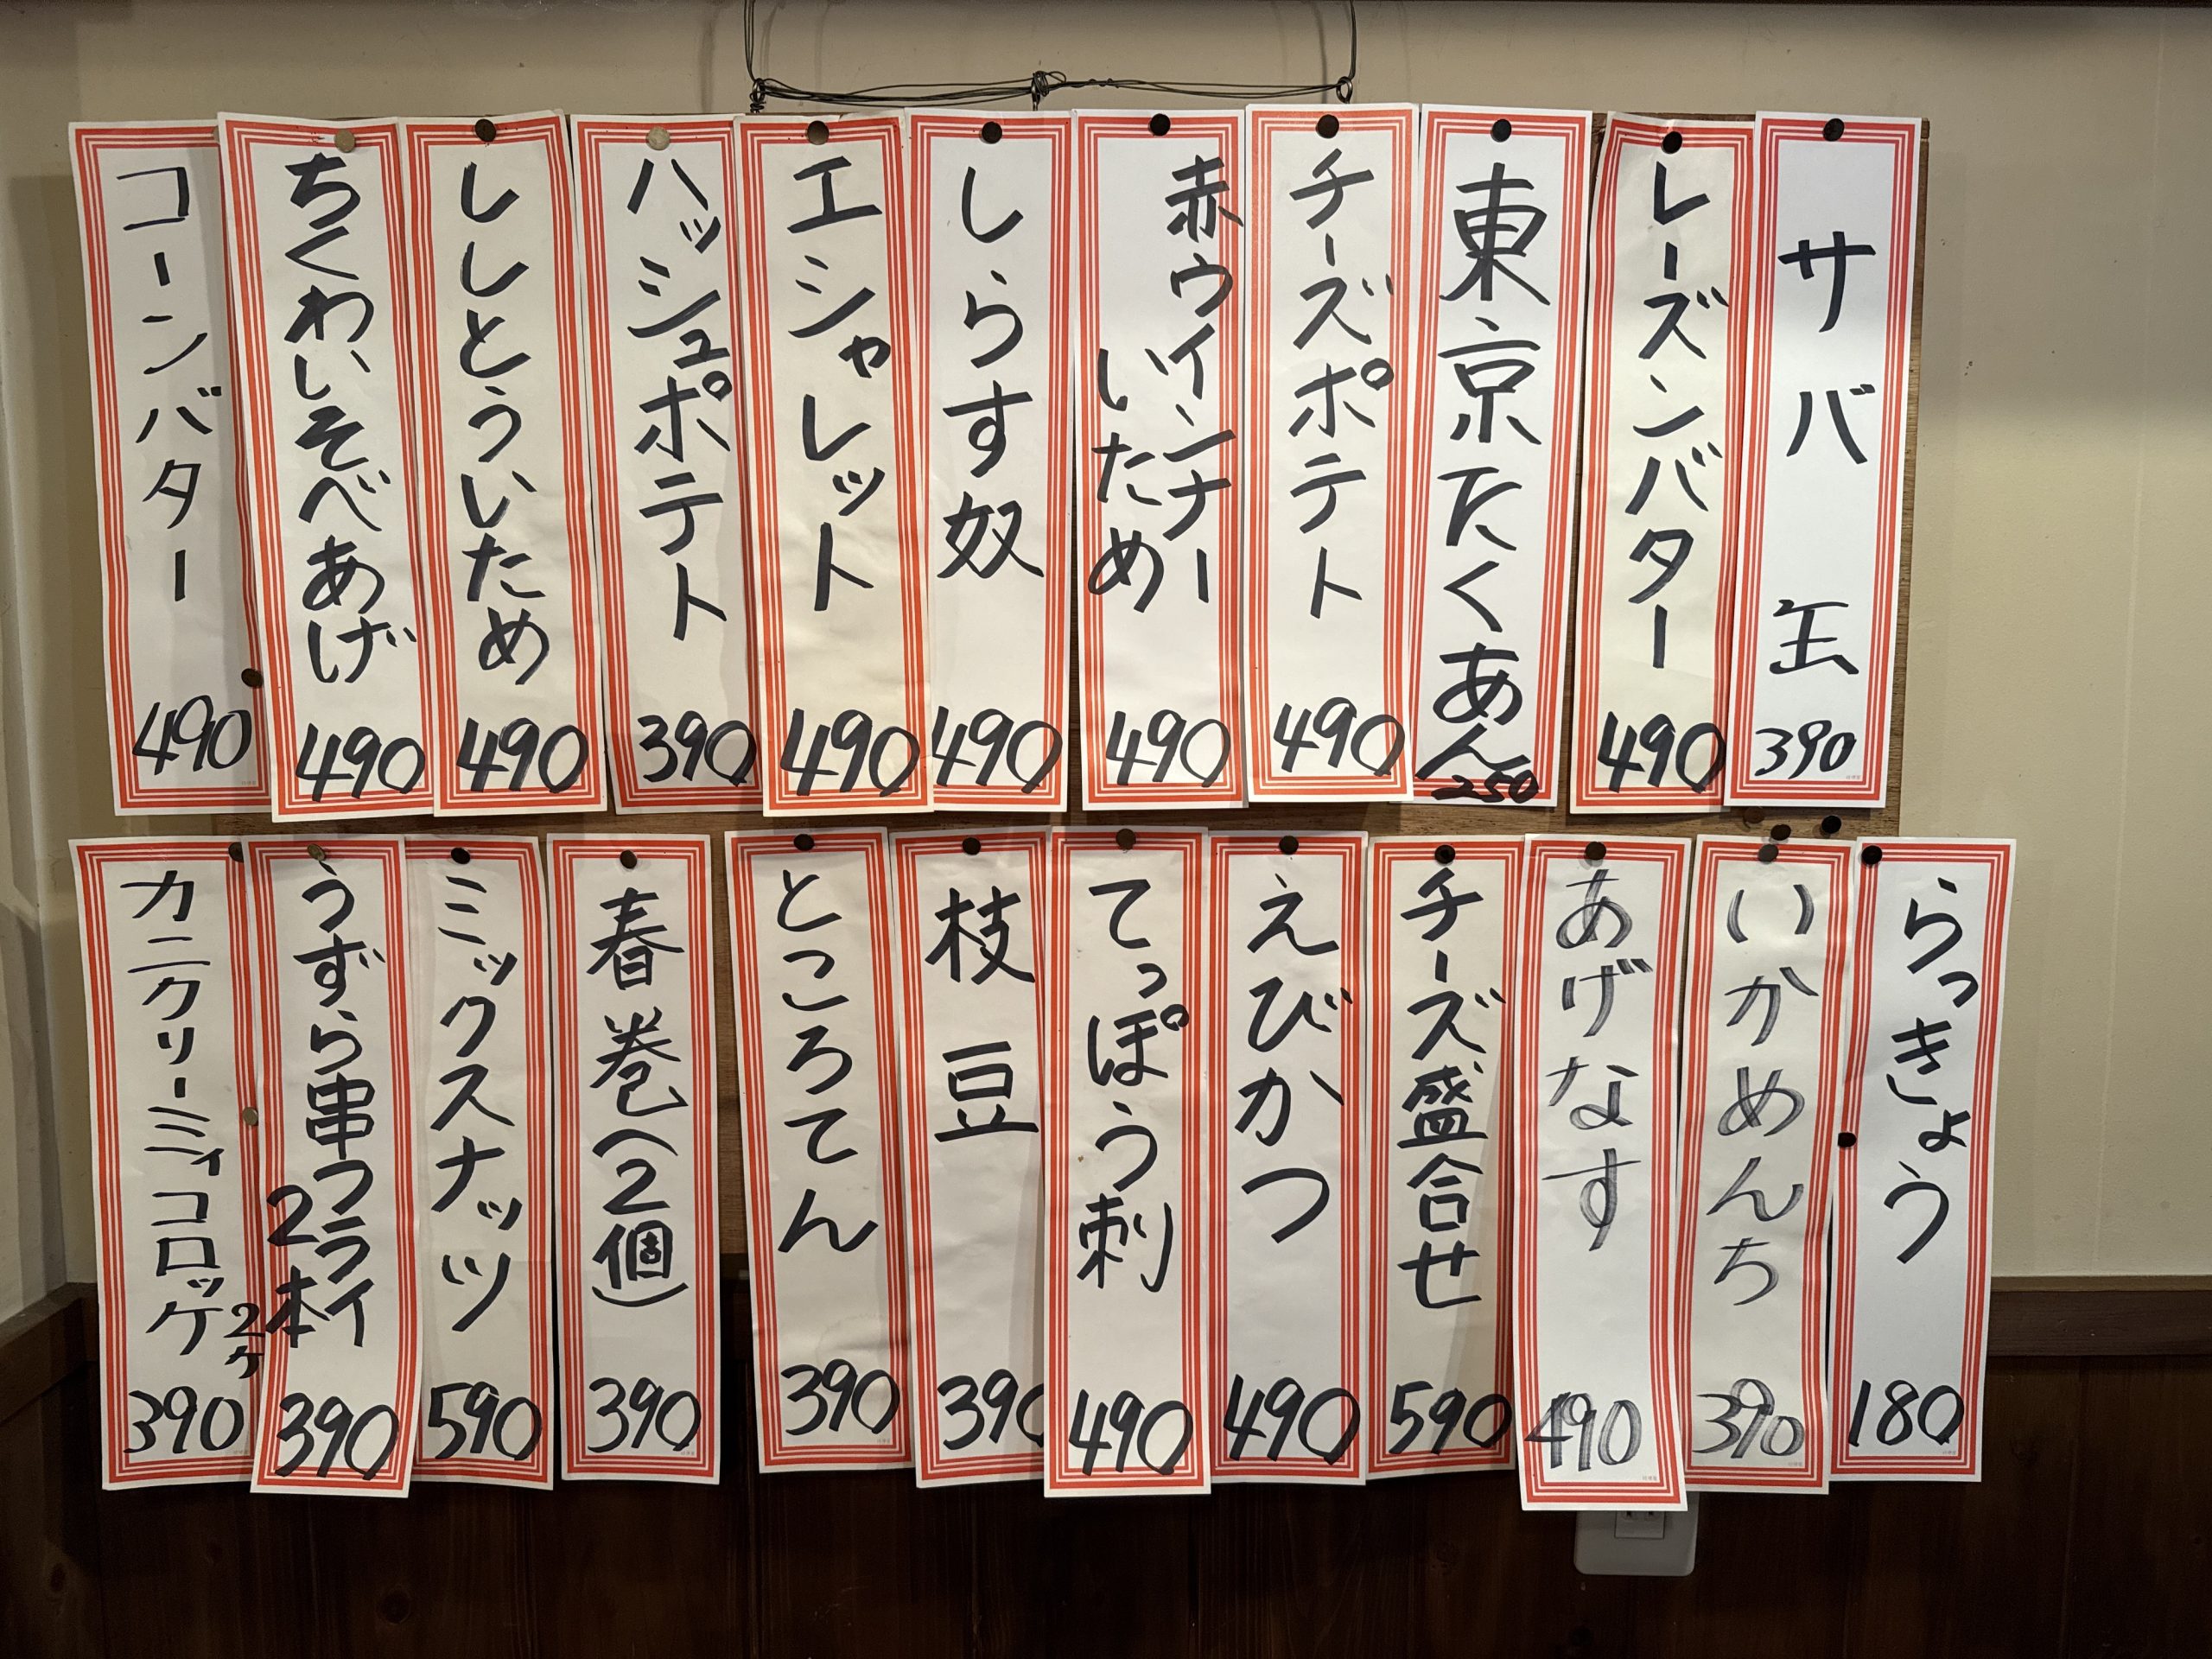 サバ缶
390
レーズンバター
490
東京たくあん
250
チーズポテト
490
赤ウインナー
いため
490
しらす奴
490
エシャレット
490
ハッシュポテト
390
ししとういため
490
ちくわいそべあげ
490
コーンバター
490
らっきょう
180
いかめんち
390
あげなす
490
チーズ盛合せ
590
えびかつ
490
てっぽう刺
490
枝豆
390
ところてん
390
春巻(2個)
390
ミックスナッツ
590
うずら串フライ
2本
390
カニクリーミィコロッケ
2ケ
390